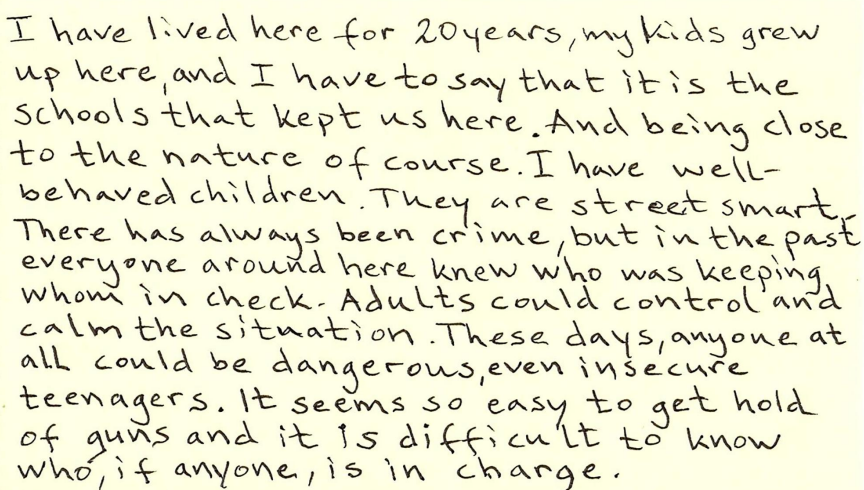 I have lived here for 20 years, my kids grew
up here, and I have to say that it is the
schools that kept us here. And being close
to the nature of course. I have well-
behaved children. They are street smart.
There has always been crime, but in the past
everyone around here knew who was keeping
whom in check. Adults could control and
calm the situation. These days, anyone at
all could be dangerous, even insecure
teenagers. It seems so easy to get hold
of guns and it is difficult to know
who, if anyone, is in charge.